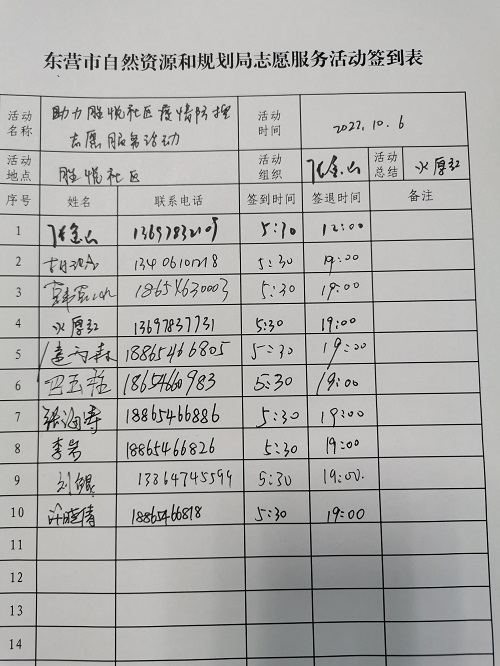 东营市自然资源和规划局志愿服务活动签到表
活动名称 助力胜悦社区疫情防控志愿服务活动 活动时间 2022.10.6
活动地点 胜悦社区 活动组织 活动总结
序号 姓名 联系电话 签到时间 签退时间 备注
1 5:30 12:00
2 13406101218 5:30 19:00
3 18654630003 5:30 19:00
4 13697837731 5:30 19:00
5 18865466805 5:30 19:00
6 18654660983 5:30 19:00
7 张海涛 18865466886 5:30 19:00
8 李岩 18865466826 5:30 19:00
9 刘鲲 13864745599 5:30 19:00
10 许晓倩 18865466818 5:30 19:00
11
12
13
14